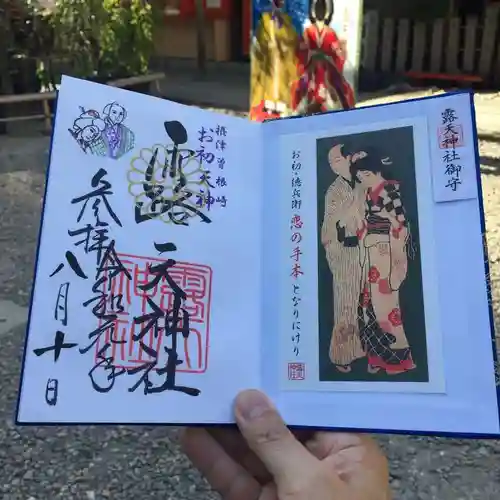 摂津曽根崎
お初天神
露天神社
参拝 令和元年
八月十日
露天神社
露天神社御守
お初・徳兵衛 恋の手本となりにけり